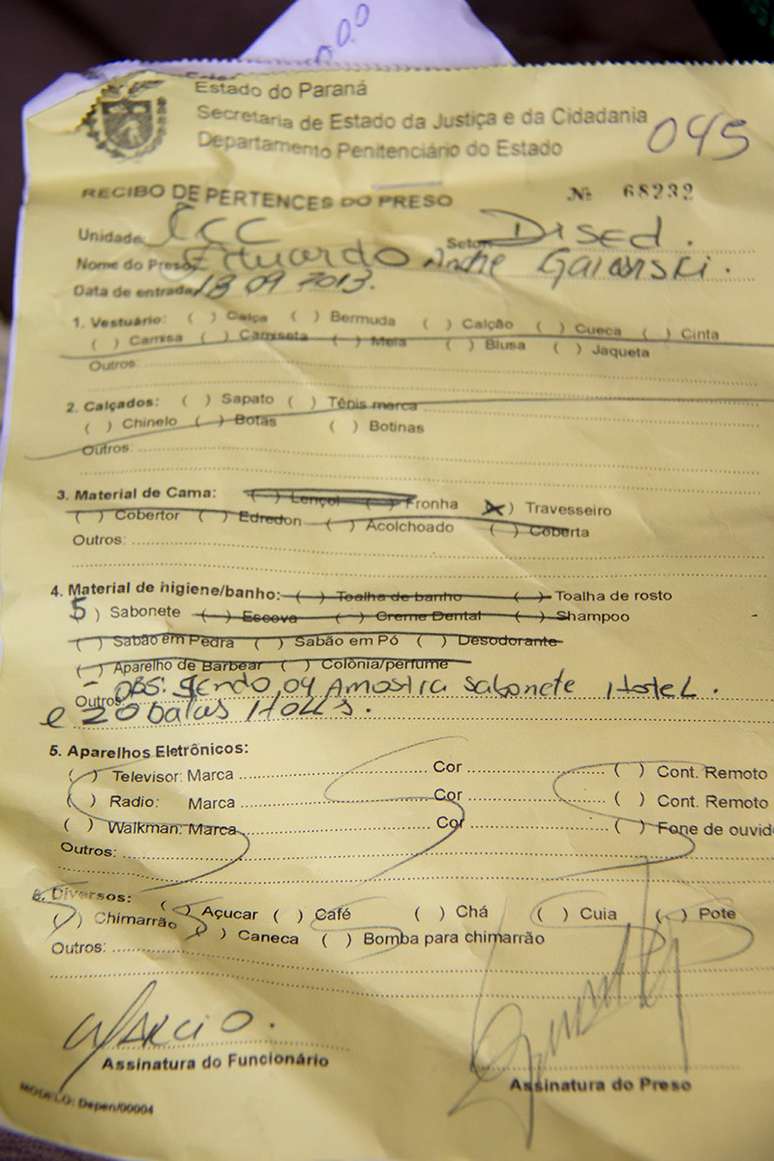 000
Estado do Paraná
Secretaria de Estado da Justiça e da Cidadania
Departamento Penitenciário do Estado
045
RECIBO DE PERTENCES DO PRESO Nº 68232
Unidade: CCC Setor Dised.
Nome do Preso: Eduardo André Gaianski.
Data de entrada 18 09 2013.
1. Vestuário: ( ) Calça ( ) Bermuda ( ) Calção ( ) Cueca ( ) Cinta
( ) Camisa ( ) Camiseta ( ) Meia ( ) Blusa ( ) Jaqueta
Outros:
2. Calçados: ( ) Sapato ( ) Tênis marca
( ) Chinelo ( ) Botas ( ) Botinas
Outros:
3. Material de Cama: ( ) Lençol ( ) Fronha (X) Travesseiro
( ) Cobertor ( ) Edredon ( ) Acolchoado ( ) Coberta
Outros:
4. Material de higiene/banho: ( ) Toalha de banho ( ) Toalha de rosto
5 ) Sabonete ( ) Escova ( ) Creme Dental ( ) Shampoo
( ) Sabão em Pedra ( ) Sabão em Pó ( ) Desodorante
( ) Aparelho de Barbear ( ) Colônia/perfume
Outros: - OBS: Sendo 04 Amostra Sabonete Hotel.
e 20 balas Halls.
5. Aparelhos Eletrônicos:
( ) Televisor: Marca Cor ( ) Cont. Remoto
( ) Radio: Marca Cor ( ) Cont. Remoto
( ) Walkman: Marca Cor ( ) Fone de ouvid
Outros:
6. Diversos: ( ) Açucar ( ) Café ( ) Chá ( ) Cuia ( ) Pote
( ) Chimarrão ( ) Caneca ( ) Bomba para chimarrão
Outros:
Marcio.
Assinatura do Funcionário
Assinatura do Preso
MODELO: Depen/00004